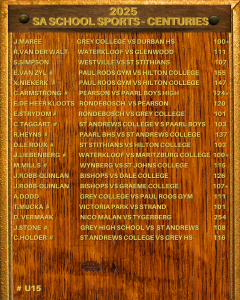 2025
SA SCHOOL SPORTS - CENTURIES
J.MAREE GREY COLLEGE VS DURBAN HS 100*
R.VAN DER WALT WATERKLOOF VS GLENWOOD 111
S.SIMPSON WESTVILLE VS ST STITHIANS 107
E.VAN ZYL # PAUL ROOS GYM VS HILTON COLLEGE 155
X.NIEKERK # PAUL ROOS GYM VS HILTON COLLEGE 147
C.ARMSTRONG # PEARSON VS PAARL BOYS HIGH 124*
E.DE HEER KLOOTS RONDEBOSCH VS PEARSON 120
E.STRYDOM # RONDEBOSCH VS GREY COLLEGE 101
C.TAGGART # ST ANDREWS COLLEGE VS PAARL BOYS 103
R.HEYNS # PAARL BHS VS ST ANDREWS COLLEGE 137
D.LE ROUX # ST STITHIANS VS HILTON COLLEGE 103
J.LIEBENBERG # WATERKLOOF VS MARITZBURG COLLEGE 100*
M.MILLS # WYNBERG VS ST JOHNS COLLEGE 116
J.ROBB-QUINLAN BISHOPS VS DALE COLLEGE 126
J.ROBB-QUINLAN BISHOPS VS GRAEME COLLEGE 107*
A.DODD GREY COLLEGE VS PAUL ROOS GYM 111
T.MUCKA # VICTORIA PARK VS STRAND 101
D. VERMAAK NICO MALAN VS TYGERBERG 254
J.STONE # GREY HIGH SCHOOL VS ST ANDREWS 108
C.HOLDER # ST ANDREWS COLLEGE VS GREY HS 116
# U15